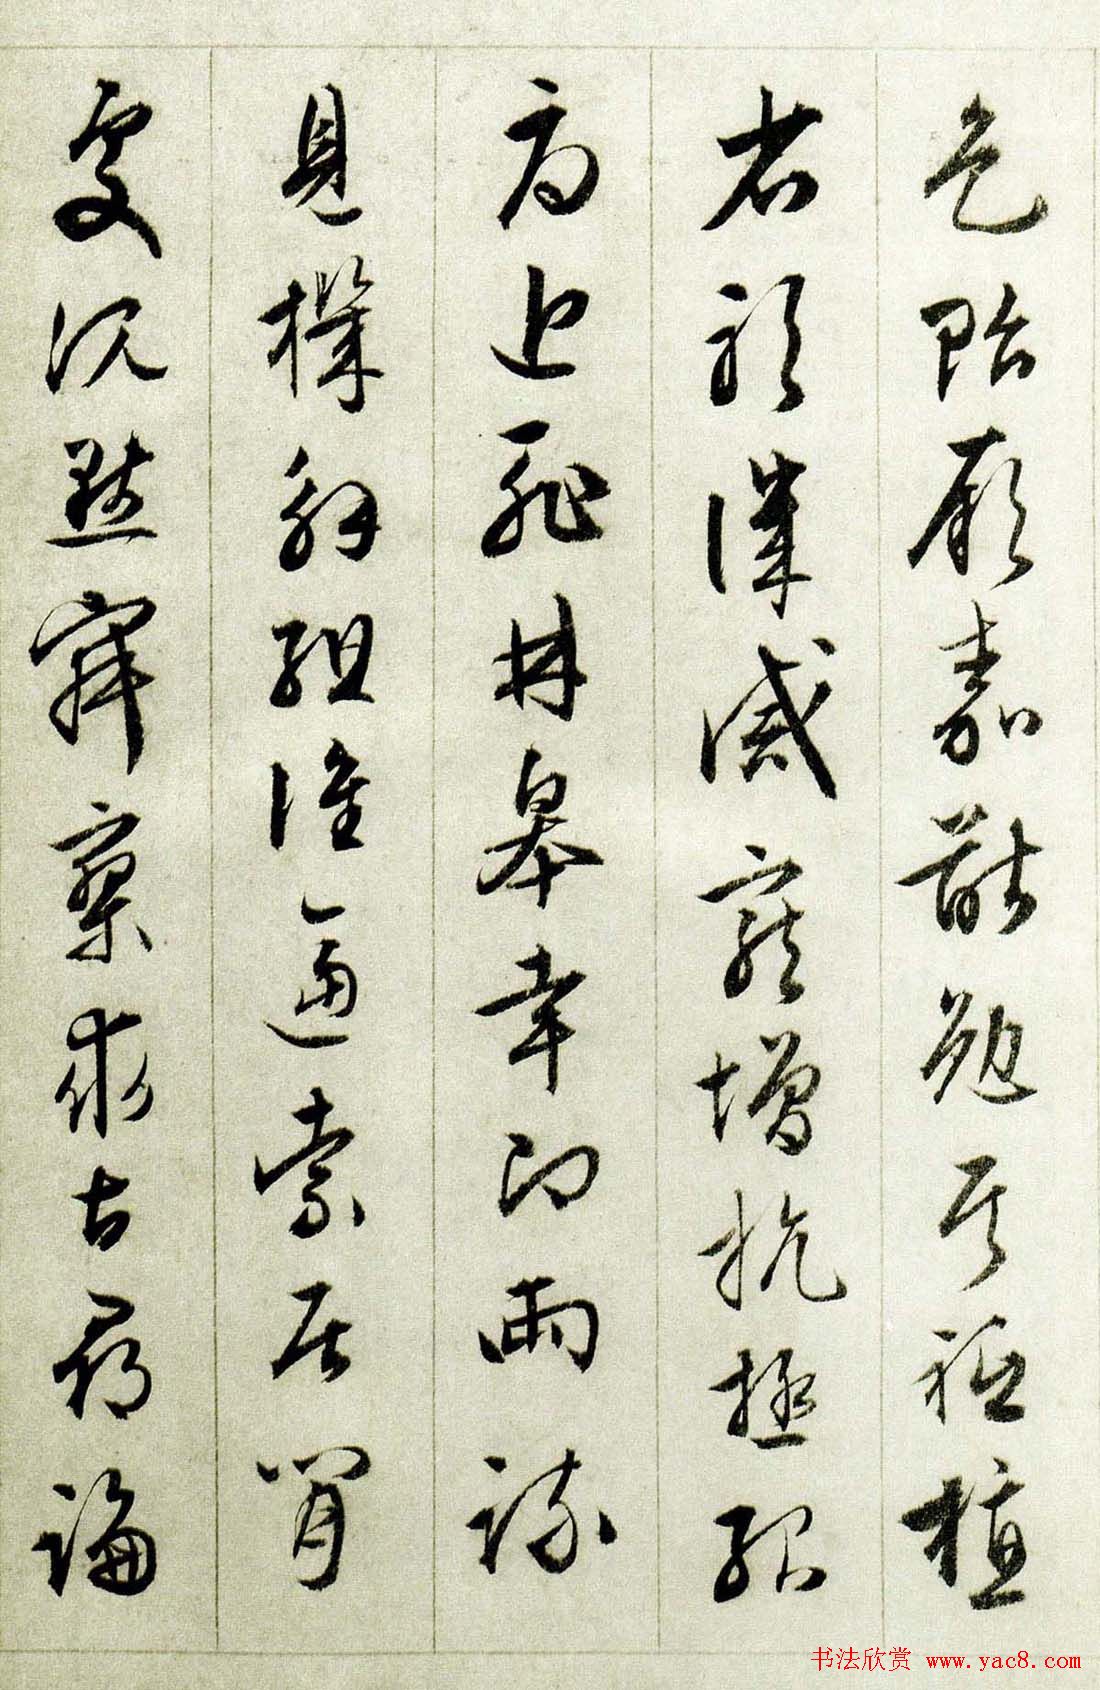 色貽厥嘉猷勉其祗植
省躬譏誡寵增抗極殆
辱近恥林皋幸即兩疏
見機解組誰逼索居閒
處沉默寂寥求古尋論
书法欣赏 www.yac8.com